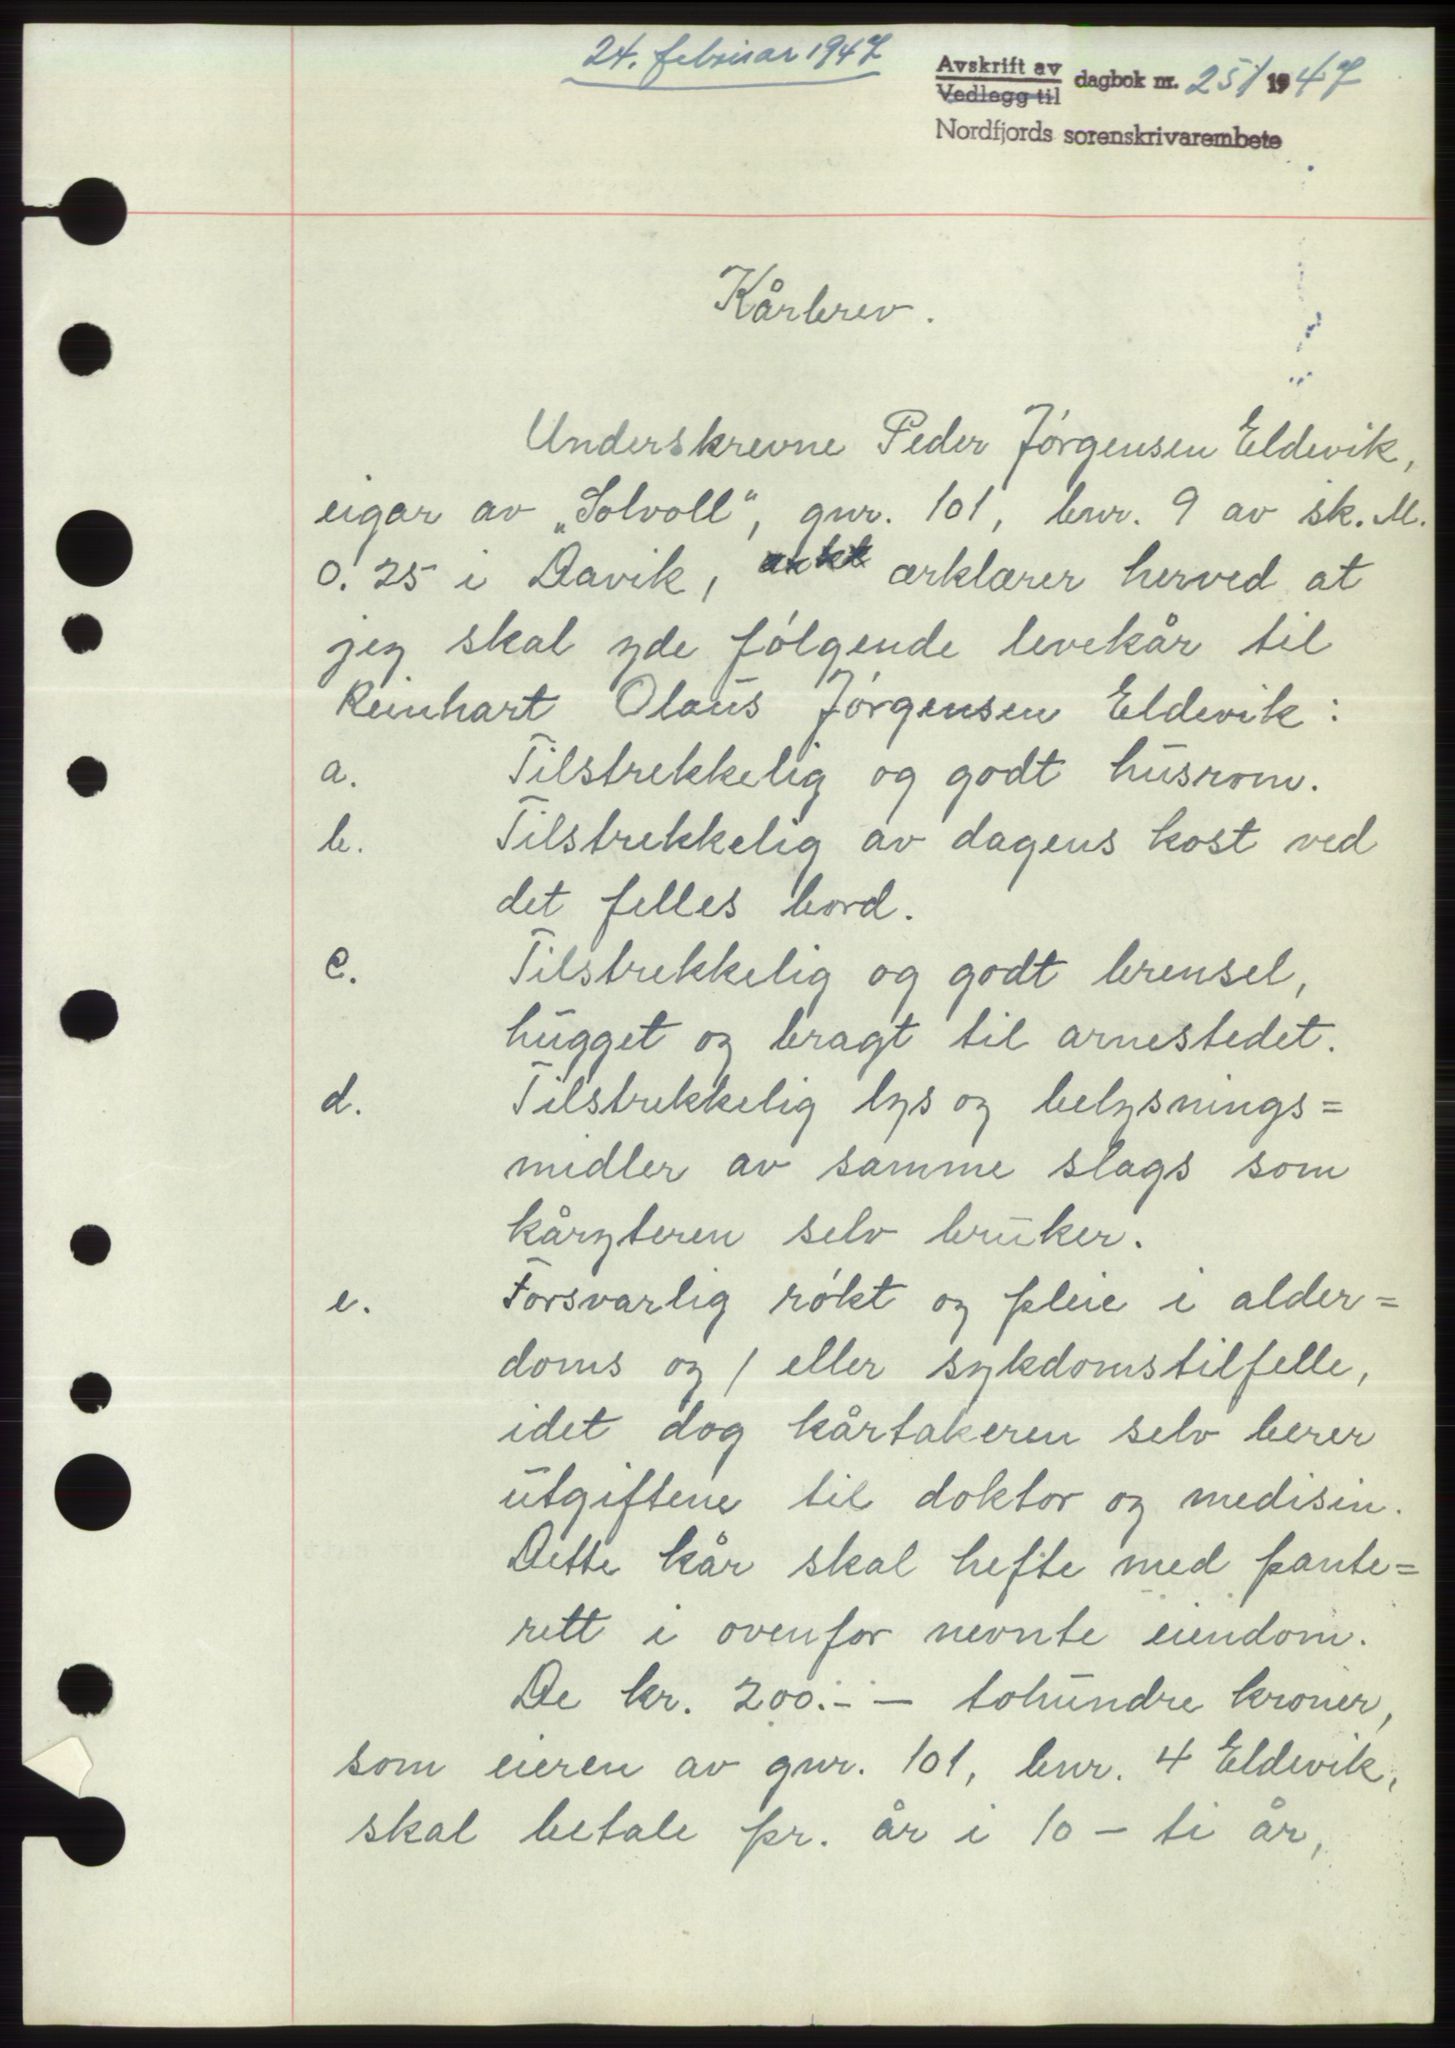 24. februar 1947
Avskrift av
Vedlegg til
dagbok nr. 251 1947
Nordfjords sorenskrivarembete
Kårbrev.
Underskrevne Peder Jørgensen Eldevik,
eigar av „Solvoll“, gnr. 101, bnr. 9 av sk. M.
0.25 i Davik, ærklærer herved at
jeg skal yde følgende levekår til
Reinhart Olaus Jørgensen Eldevik:
a. Tilstrekkelig og godt husrom.
b. Tilstrekkelig av dagens kost ved
det felles bord.
c. Tilstrekkelig og godt brensel,
hugget og bragt til arnestedet.
d. Tilstrekkelig lys og belysnings=
midler av samme slags som
kåryteren selv bruker.
e. Forsvarlig røkt og pleie i alder=
doms og / eller sykdomstilfelle,
idet dog kårtakeren selv berer
utgiftene til doktor og medisin.
Dette kår skal hefte med pante=
rett i ovenfor nevnte eiendom.
De kr. 200.- - tohundre kroner,
som eieren av gnr. 101, bnr. 4 Eldevik,
skal betale pr. år i 10 - ti år,